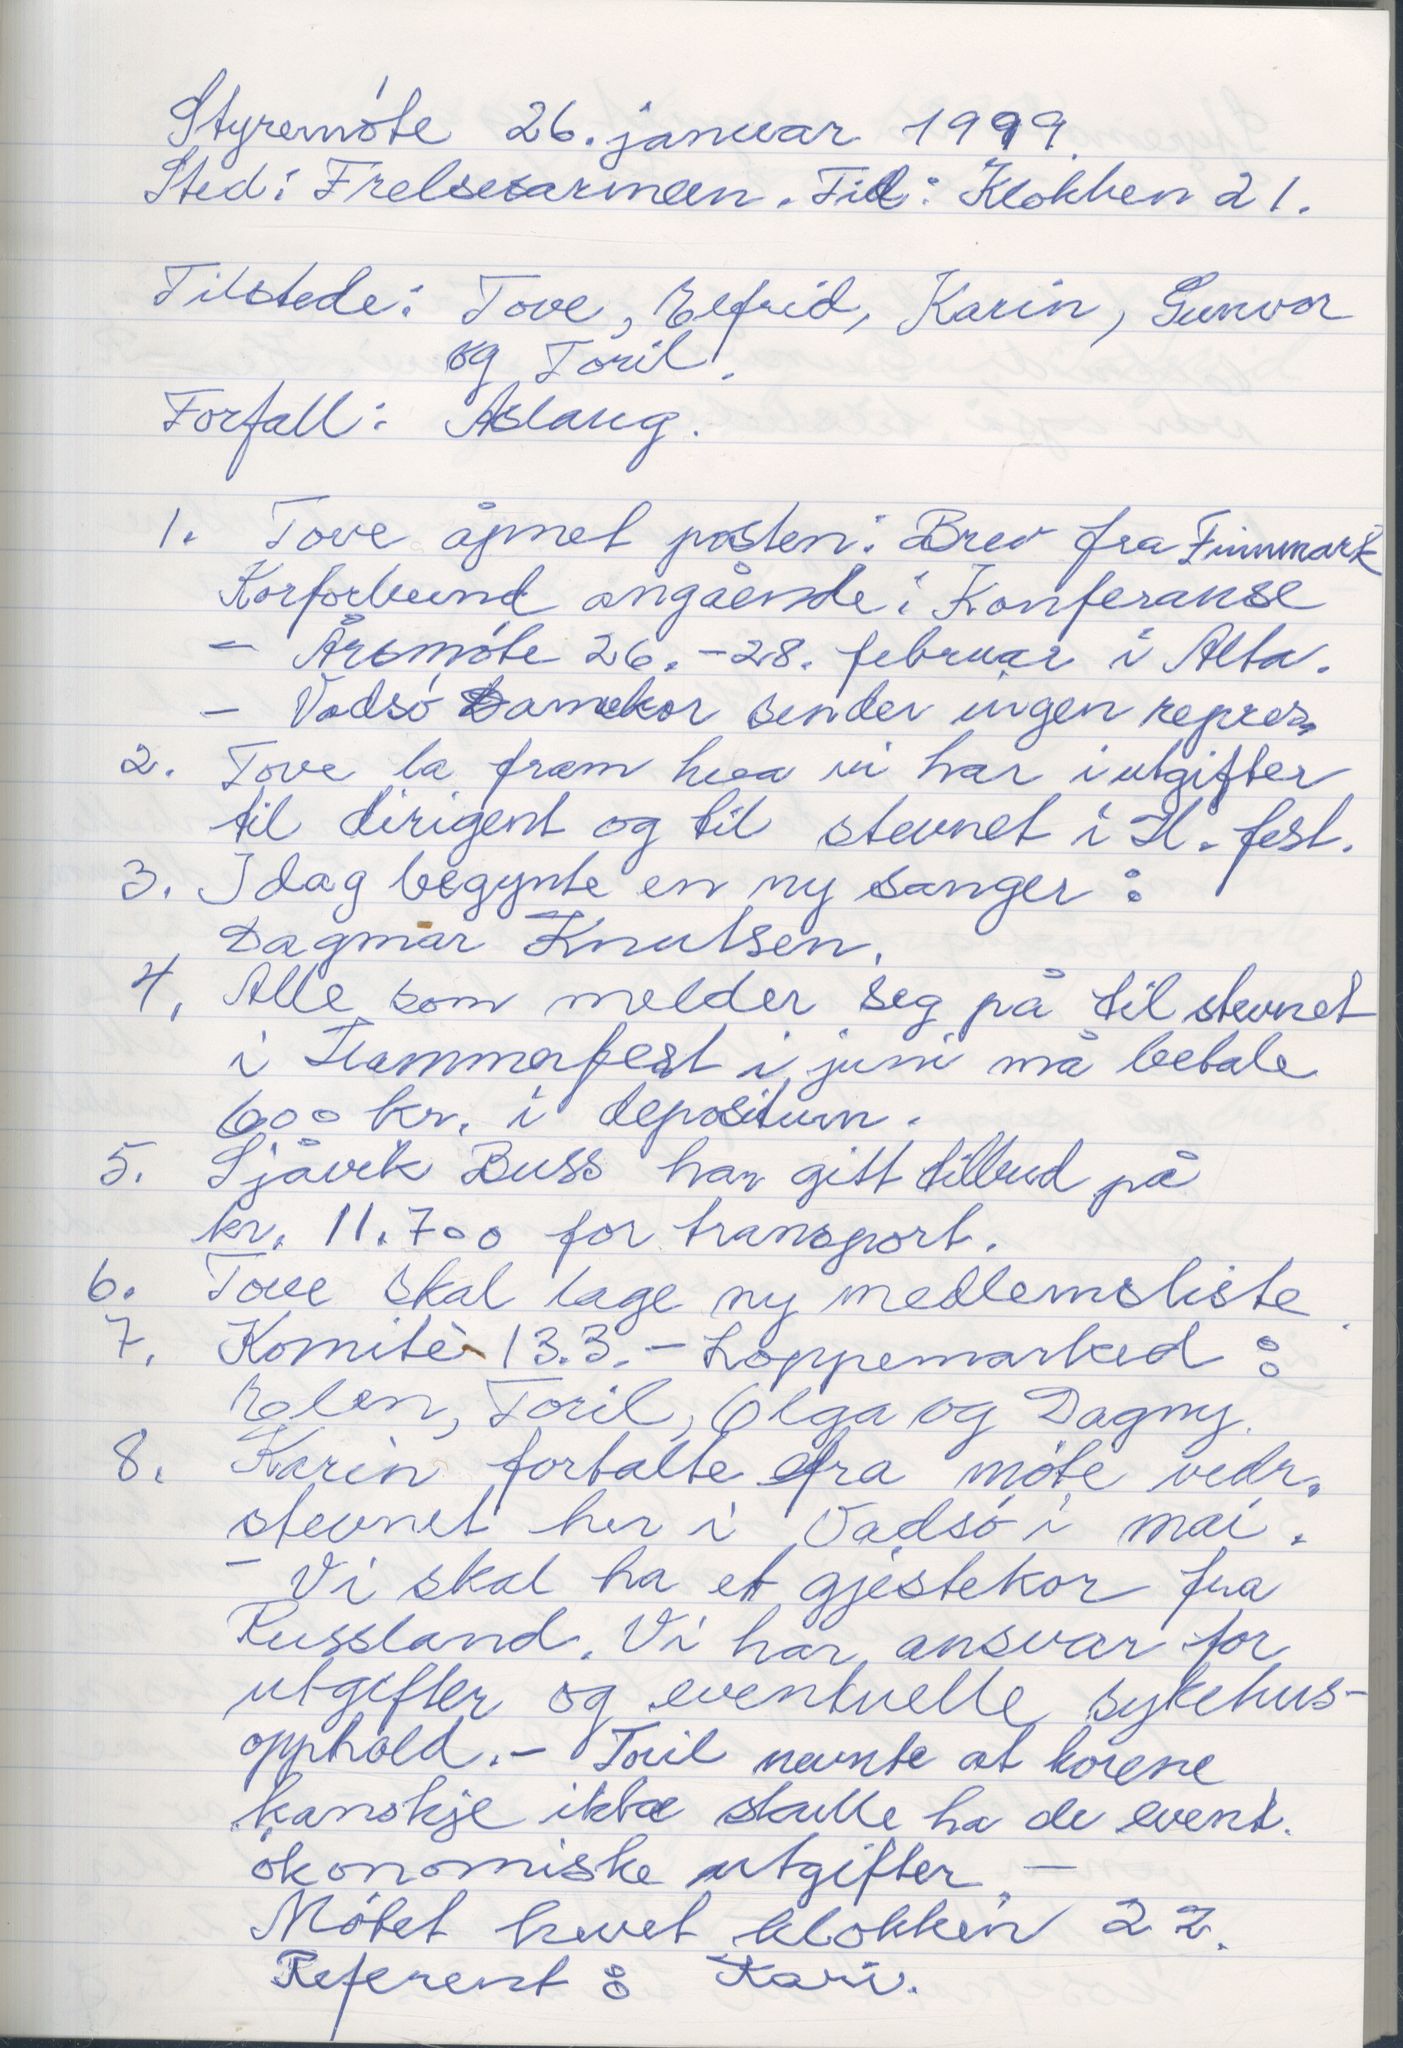 Styremøte 26. januar 1999.
Sted: Frelsesarmeen. Tid: Klokken 21.
Tilstede: Tove, Elfrid, Karin, Gunvor
og Toril.
Forfall: Aslaug.
1. Tove åpnet posten: Brev fra Finnmark
Korforbund angående: Konferanse
- Årsmøte 26. - 28. februar i Alta.
- Vadsø Damekor sender ingen repres.
2. Tove la fram hva vi har i utgifter
til dirigent og til stevnet i H. fest.
3. I dag begynte en ny sanger:
Dagmar Knutsen.
4. Alle som melder seg på til stevnet
i Hammerfest i juni må betale
600 kr. i depositum.
5. Sjåvik Buss har gitt tilbud på
kr. 11.700 for transport.
6. Tove skal lage ny medlemsliste.
7. Komitè 13.3. - Loppemarked:
Elen, Toril, Olga og Dagny.
8. Karin fortalte fra møte vedr.
stevnet her i Vadsø i mai.
- Vi skal ha et gjestekor fra
Russland. Vi har ansvar for
utgifter og eventuelle sykehus-
opphold. - Toril nevnte at korene
kanskje ikke skulle ha de event.
økonomiske utgifter. -
Møtet hevet klokken 22.
Referent: Kari.